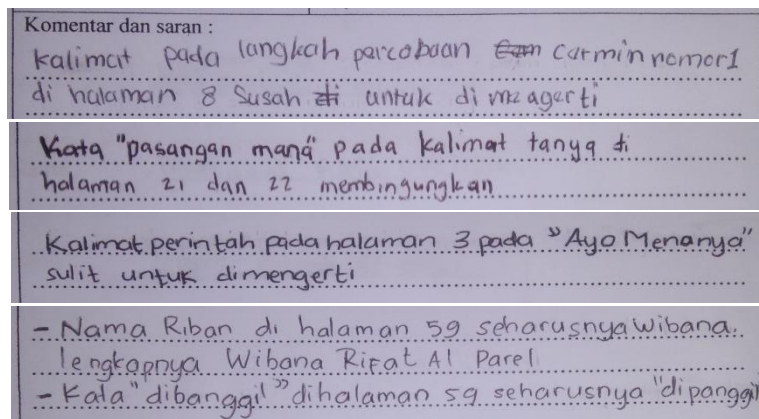 Komentar dan saran :
Kalimat pada langkah percobaan carmin nomor 1
di halaman 8 Susah untuk di meagerti
Kata "pasangan mana" pada kalimat tanya di
halaman 21 dan 22 membingungkan
Kalimat perintah pada halaman 3 pada "Ayo Menanya"
sulit untuk dimengerti
- Nama Riban di halaman 59 seharusnya wibana.
lengkapnya Wibana Rifat Al Parel
- Kata "dibanggil" dihalaman 59 seharusnya "dipanggil